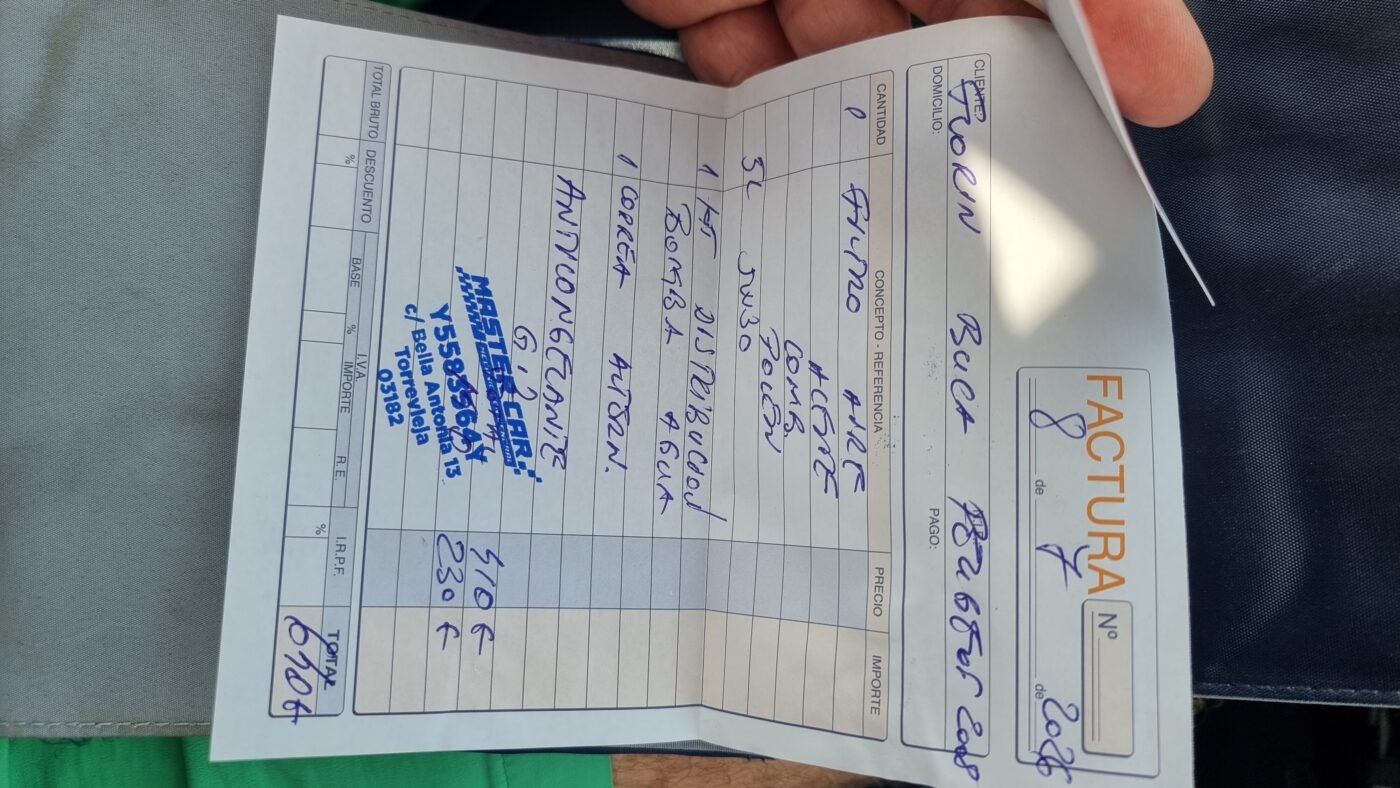 FACTURA
Nº
8 de 7 de 2026
CLIENTE:
BUCA 2008
DOMICILIO:
PAGO:
CANTIDAD CONCEPTO - REFERENCIA PRECIO IMPORTE
FILTRO AIRE
ACEITE
COMB.
POLEN
5L 5W30
1 KIT DISTRIBUCION
BOMBA AGUA
1 CORREA ALTERN.
ANTICONGELANTE
G12
MASTER CAR
410 €
Y5583564Y
230 €
c/ Bella Antonia 13
Torrevieja
03182
TOTAL BRUTO DESCUENTO I.V.A. R.E. I.R.P.F. TOTAL
% BASE % IMPORTE %
640 €